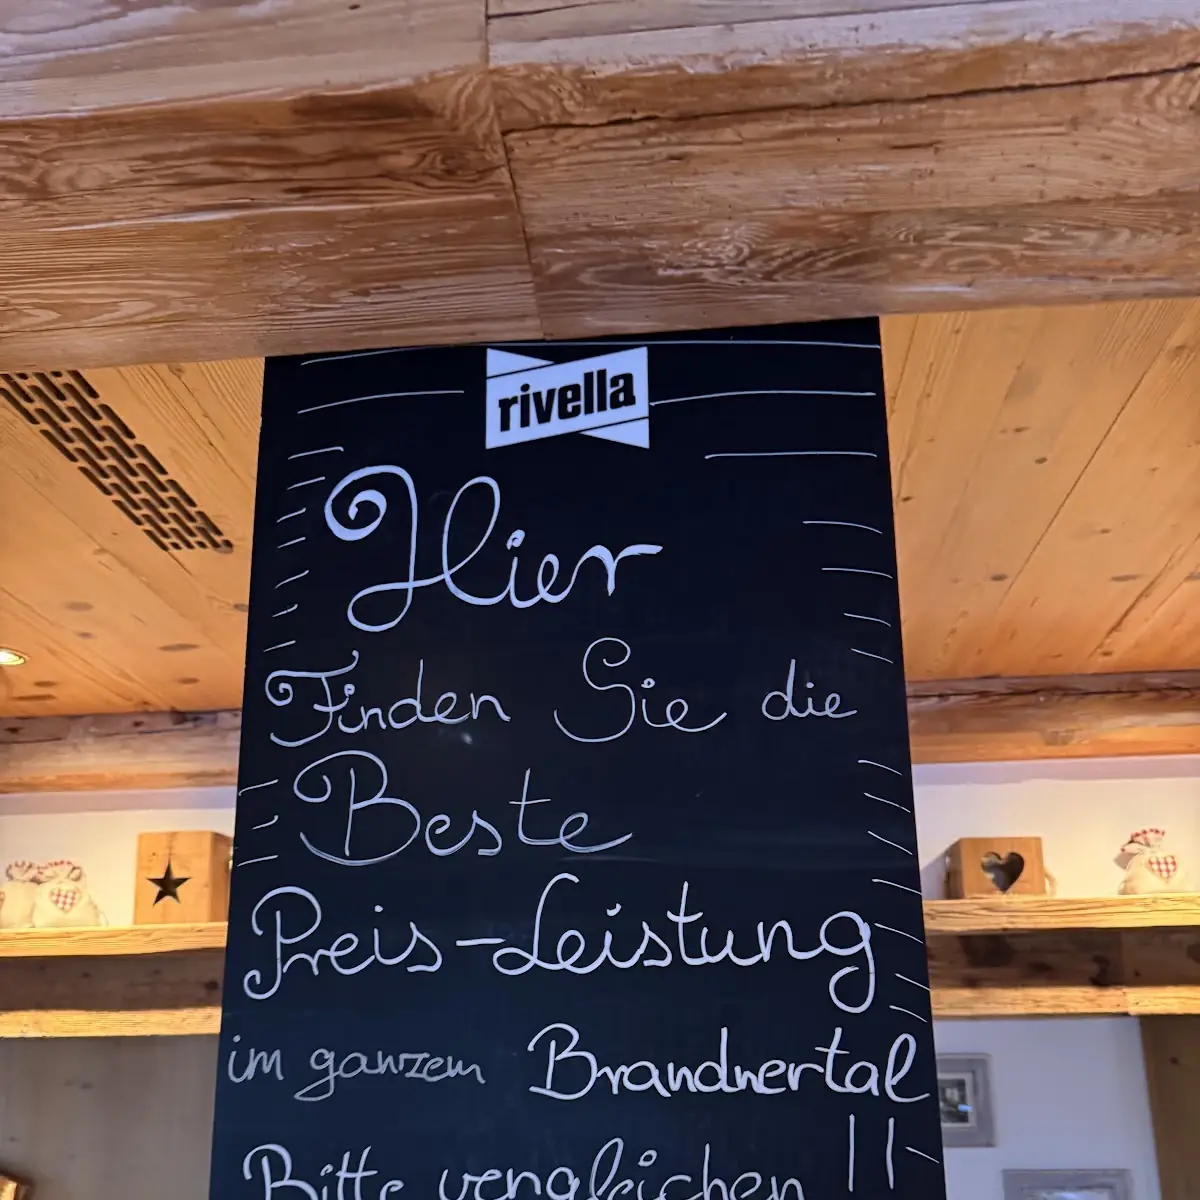 rivella
Hier
Finden Sie die
Beste
Preis-Leistung
im ganzem Brandnertal
Bitte vergleichen !!